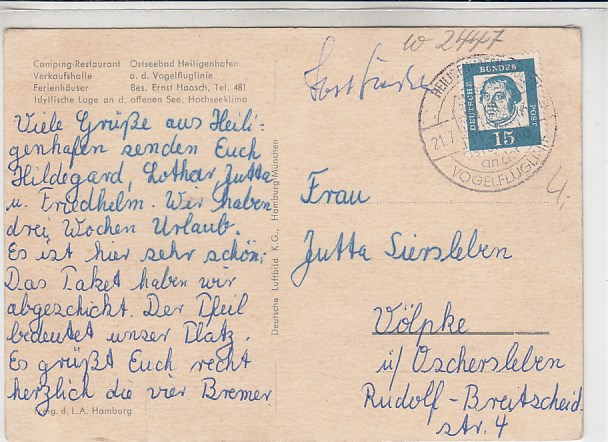 w 2447
Camping-Restaurant Ostseebad Heiligenhafen
Verkaufshalle a. d. Vogelfluglinie
Ferienhäuser Bes. Ernst Haasch, Tel. 481
Idyllische Lage an d. offenen See, Hochseeklima
Viele Grüße aus Heili-
genhafen senden Euch
Hildegard, Lothar, Jutta
u. Friedhelm. Wir haben
drei Wochen Urlaub.
Es ist hier sehr schön;
Das Paket haben wir
abgeschickt. Der Pfeil
bedeutet unser Platz.
Es grüßt Euch recht
herzlich die vier Bremer
Freig. d. L.A. Hamburg
Deutsche Luftbild K.G., Hamburg/München
Postkarte
DEUTSCHE BUNDES POST
15
21.7.
an d.
VOGELFLUGLINIE
4,
Frau
Jutta Siersleben
Völpke
ü/ Oschersleben
Rudolf-Breitscheid-
str. 4